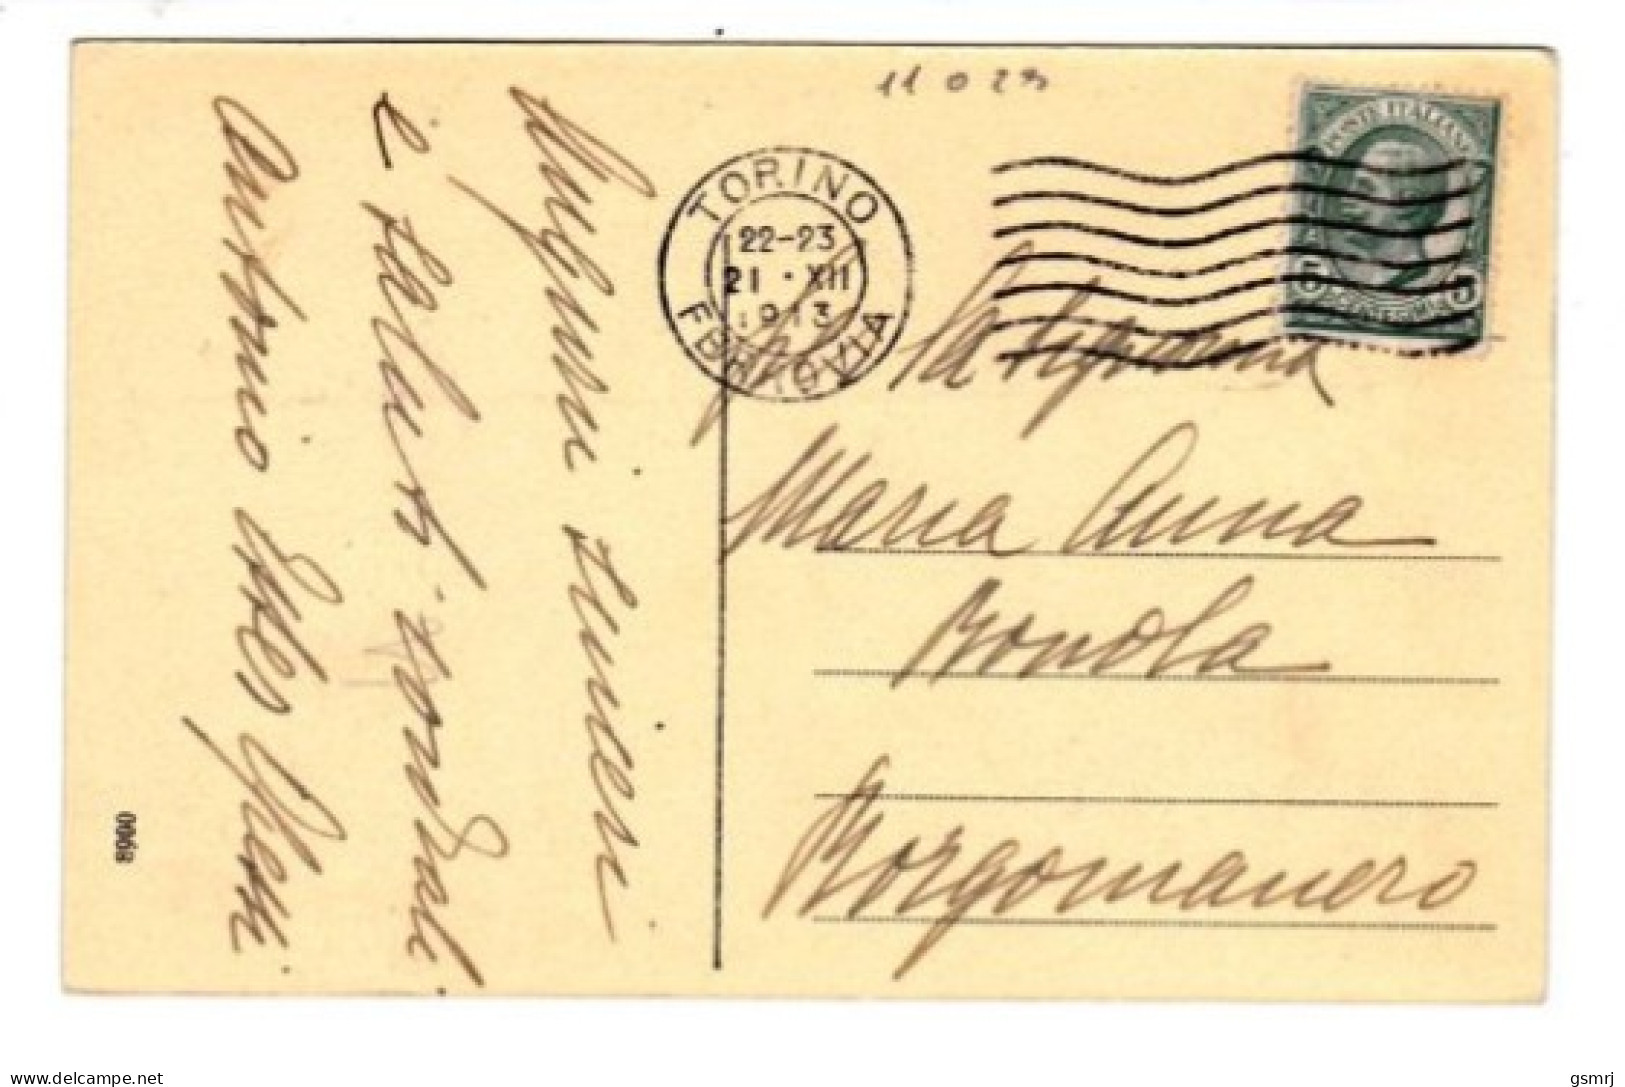 11 0 23
TORINO
22-23
21 · XII
1913
FERROVIA
POSTE ITALIANE
5 CENTESIMI 5
Auguri sinceri
e saluti cordiali
Antonio
La Signorina
Maria Anna
Bonola
Borgomanero
8900
delcampe.net
gsmrj